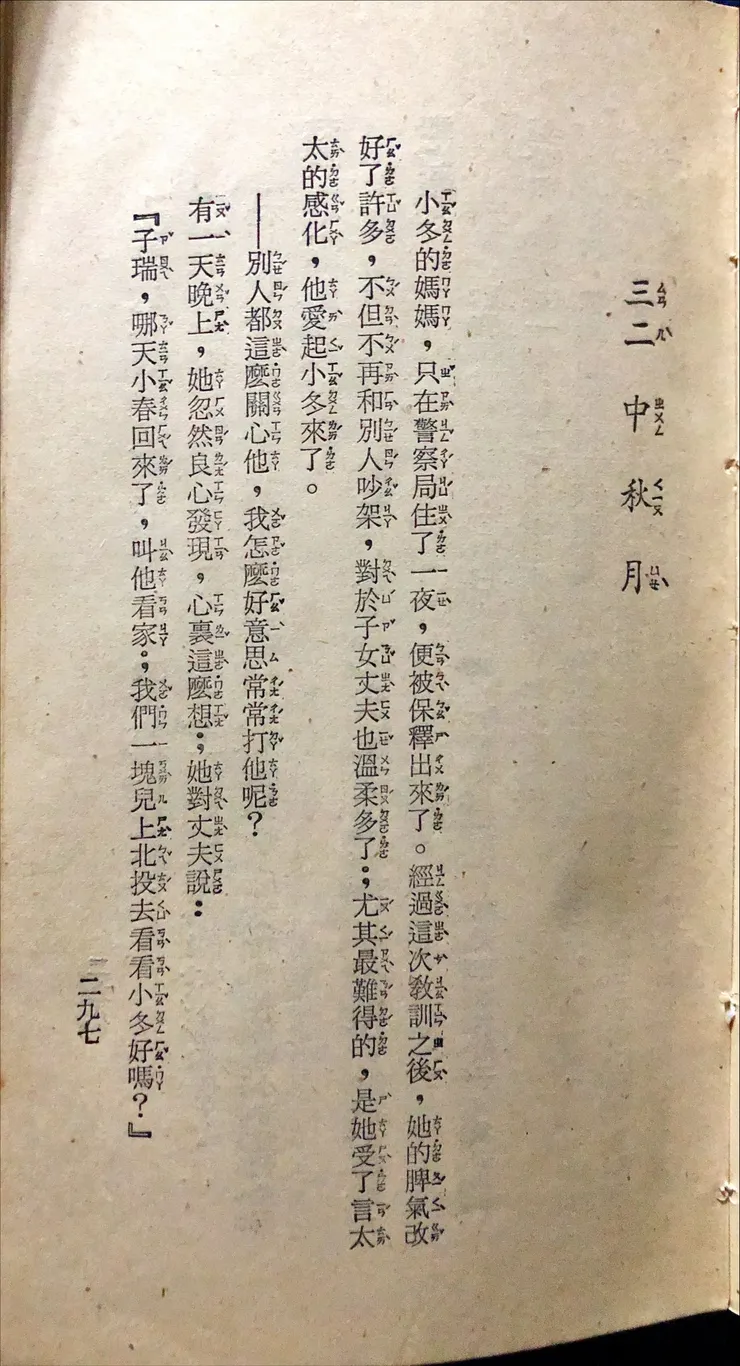 三二　中秋月
小冬的媽媽，只在警察局住了一夜，便被保釋出來了。經過這次教訓之後，她的脾氣改
好了許多，不但不再和別人吵架，對於子女丈夫也溫柔多了；尤其最難得的，是她受了言太
太的感化，他愛起小冬來了。
——別人都這麼關心他，我怎麼好意思常常打他呢？
有一天晚上，她忽然良心發現，心裏這麼想；她對丈夫說：
『子瑞，哪天小春回來了，叫他看家；我們一塊兒上北投去看看小冬好嗎？』
二九七